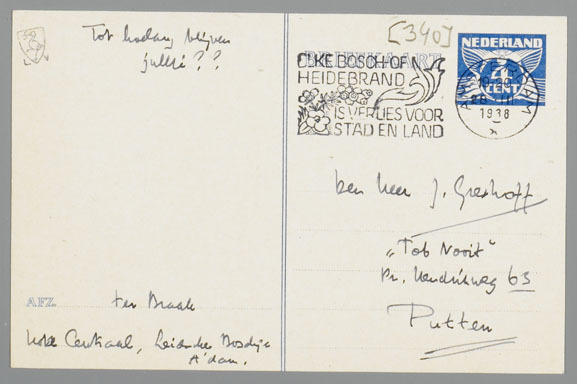 Tot hoelang blijven
jullie??
[340]
BRIEFKAART
ELKE BOSCH OF
HEIDEBRAND
IS VERLIES VOOR
STAD EN LAND
NEDERLAND
4
CENT
AMSTERDAM
1938
den Heer J. Greshoff
"Tob Nooit"
Pr. Hendrikweg 63
Putten
AFZ.
ter Braak
Hotel Centraal, Leidsche Boschje
A'dam.